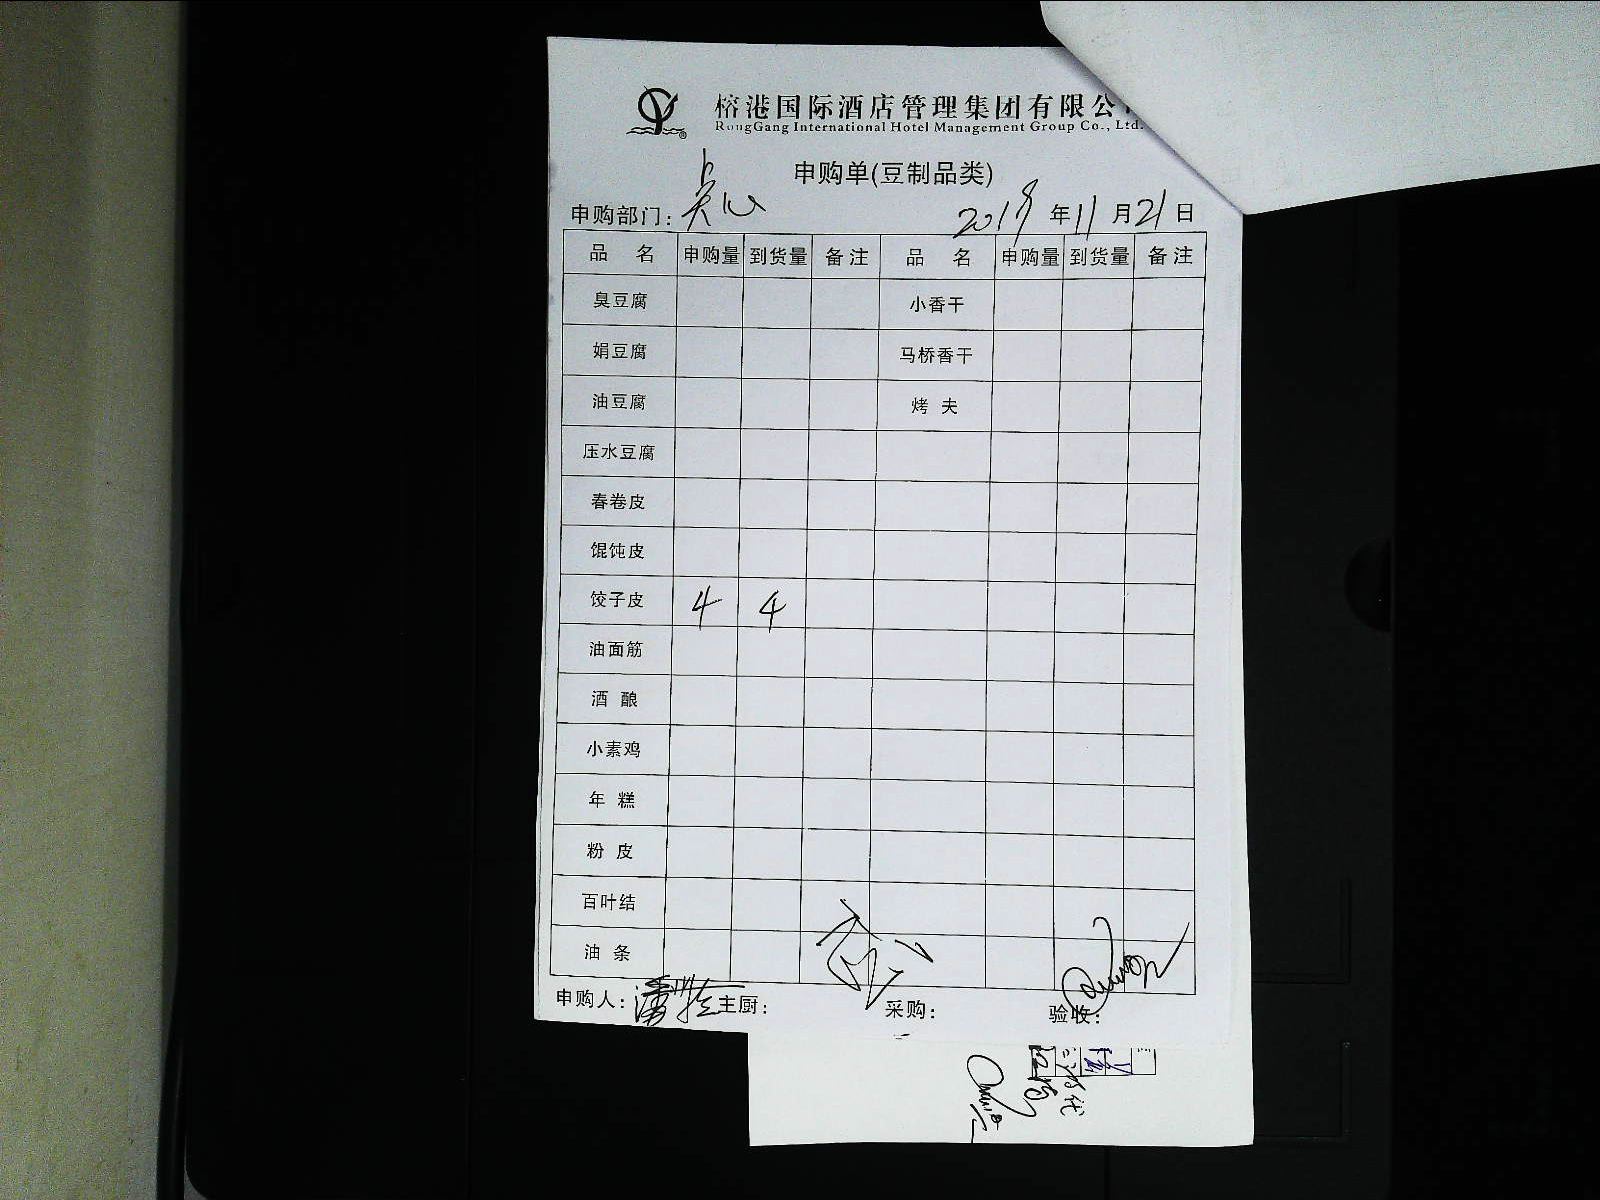 榕港国际酒店管理集团有限公
RongGang International Hotel Management Group Co., Ltd.
申购单(豆制品类)
申购部门: 点心 2019 年 11 月 21 日
品 名 申购量 到货量 备注 品 名 申购量 到货量 备注
臭豆腐 小香干
娟豆腐 马桥香干
油豆腐 烤 夫
压水豆腐
春卷皮
馄饨皮
饺子皮 4 4
油面筋
酒 酿
小素鸡
年 糕
粉 皮
百叶结
油 条
申购人: 主厨: 采购: 验收: